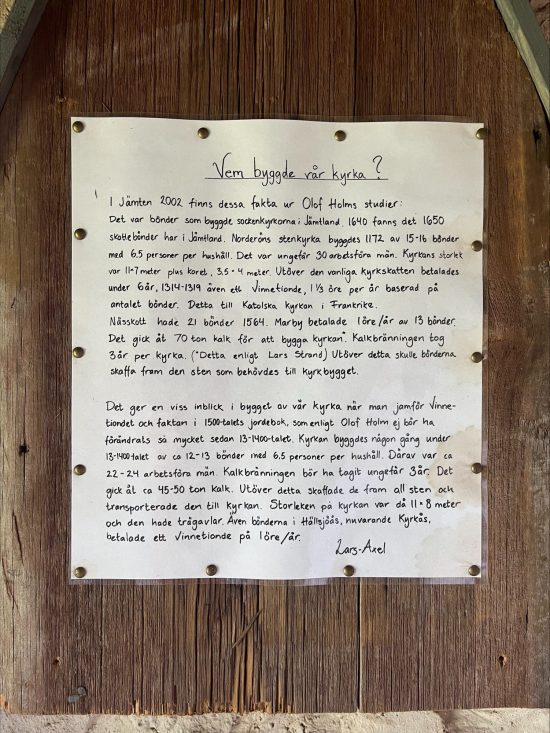 Vem byggde vår kyrka?
I Jämten 2002 finns dessa fakta ur Olof Holms studier:
Det var bönder som byggde sockenkyrkorna i Jämtland. 1640 fanns det 1650
skattebönder har i Jämtland. Norderöns stenkyrka byggdes 1172 av 15-16 bönder
med 6.5 personer per hushåll. Det var ungefär 30 arbetsföra män. Kyrkans storlek
var 11×7 meter plus koret, 3,5 × 4 meter. Utöver den vanliga kyrkskatten betalades
under 6år, 1314-1319 även ett Vinnetionde, 1 1/3 öre per år baserad på
antalet bönder. Detta till Katolska kyrkan i Frankrike.
Nässkott hade 21 bönder 1564. Marby betalade 1öre/år av 13 bönder.
Det gick åt 70 ton kalk för att bygga kyrkan*. Kalkbränningen tog
3år per kyrka. (*Detta enligt Lars Strand) Utöver detta skulle bönderna
skaffa fram den sten som behövdes till kyrkbygget.
Det ger en viss inblick i bygget av vår kyrka när man jämför Vinne-
tiondet och faktan i 1500-talets jordebok, som enligt Olof Holm ej bör ha
förändrats så mycket sedan 13-1400-talet. Kyrkan byggdes någon gång under
13-1400-talet av ca 12-13 bönder med 6,5 personer per hushåll. Därav var ca
22-24 arbetsföra män. Kalkbränningen bör ha tagit ungefär 3år. Det
gick åt ca 45-50 ton kalk. Utöver detta skaffade de fram all sten och
transporterade den till kyrkan. Storleken på kyrkan var då 11×8 meter
och den hade trägavlar. Även bönderna i Hällsjöås, nuvarande Kyrkås,
betalade ett Vinnetionde på 1öre/år.
Lars-Axel